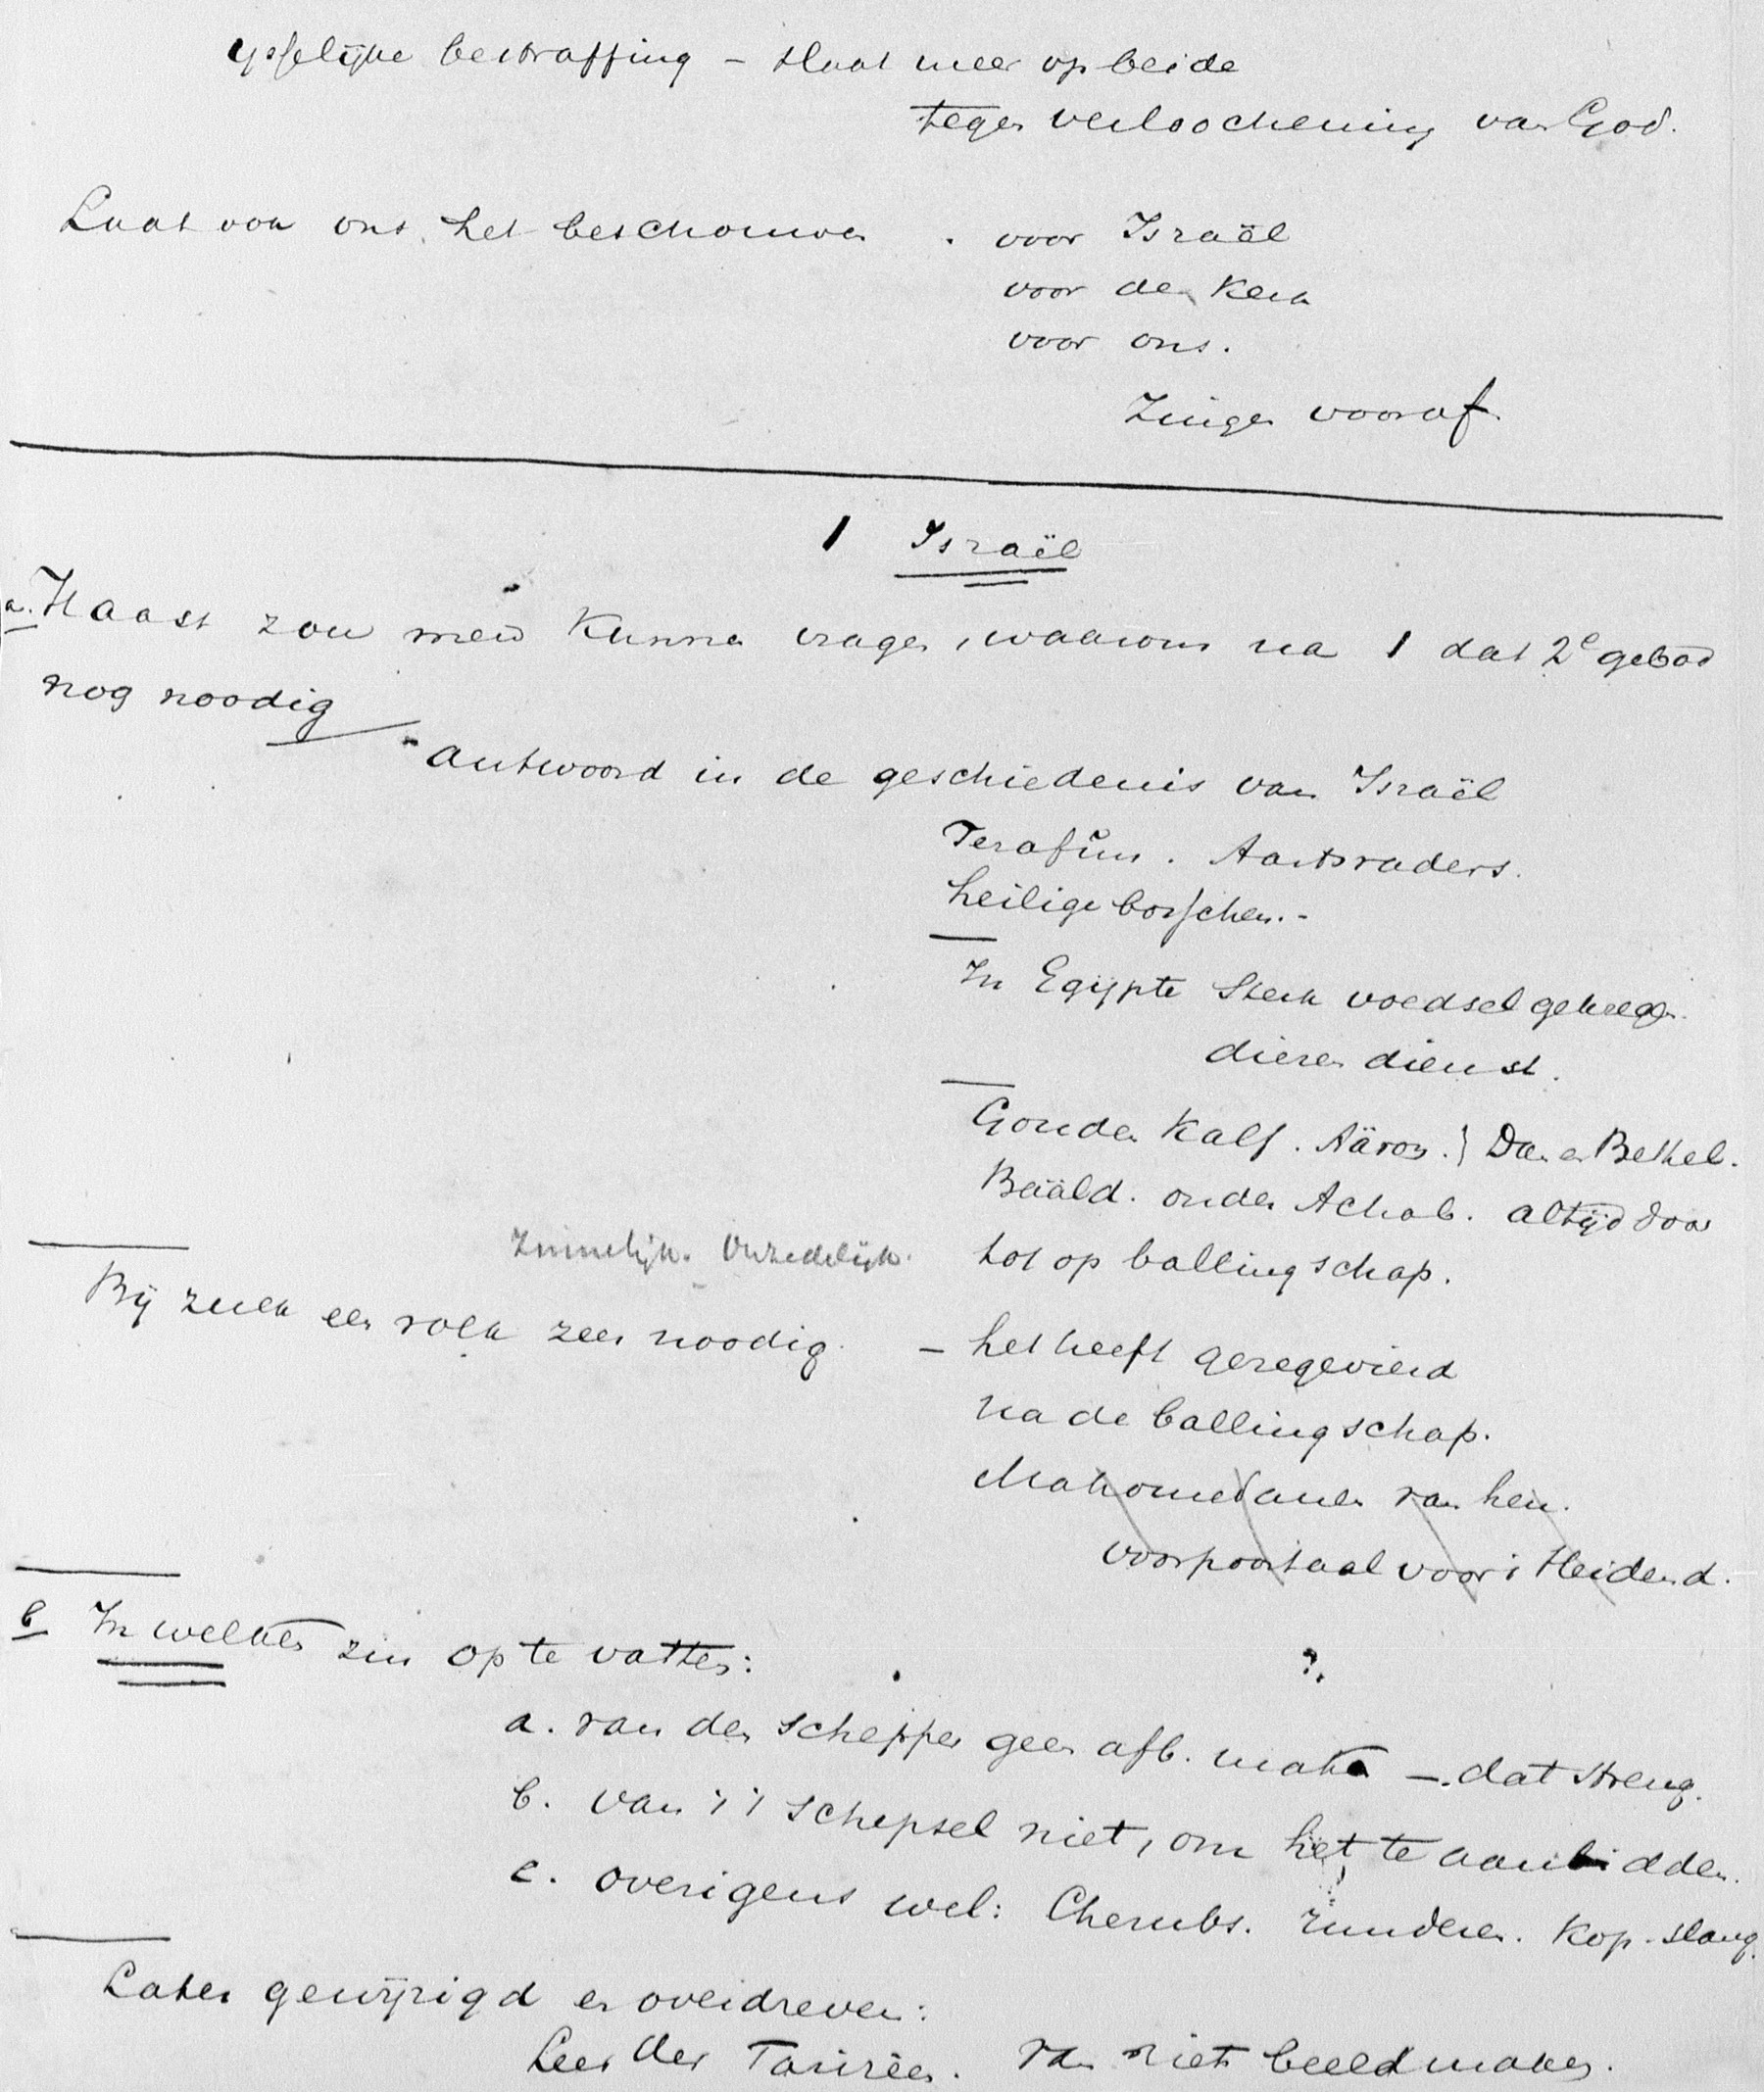 ijselijke bestraffing – slaat meer op beide
tegen verloochening van God.
Laat ook ons het beschouwen . voor Israël
voor de Kerk
voor ons.
Zingen vooraf
1 Israël
a. Haast zou men kunnen vragen, waarom na 1 dat 2e gebod
nog noodig
Antwoord in de geschiedenis van Israël
Terafim. Aartsvaders.
heilige bosschen. -
In Egypte sterk voedsel gekregen.
dieren dienst.
Gouden Kalf. Aäron. } Dan en Bethel.
Baäld. onder Achab. altijd door
Zinnelijk. Onzedelijk. tot op ballingschap.
Bij zulk een volk zeer noodig. – het heeft gezegevierd
na de ballingschap.
Mahomedanen van hen.
voorportaal voor ' Heidend.
b In welken zin op te vatten: ?.
a. van den schepper geen afb. maken –. dat streng.
b. van ' ' schepsel niet, om het te aanbidden.
c. overigens wel: Cherubs. runderen. Kop. slang.
Later gewijzigd en overdreven:
Leer der Farizëen. van niets beeld maken.